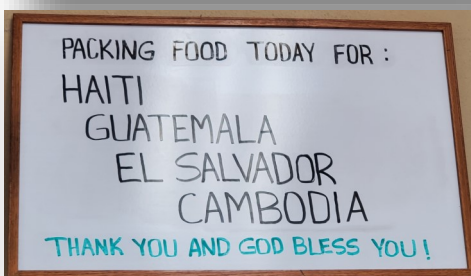 PACKING FOOD TODAY FOR :
HAITI
GUATEMALA
EL SALVADOR
CAMBODIA
THANK YOU AND GOD BLESS YOU!